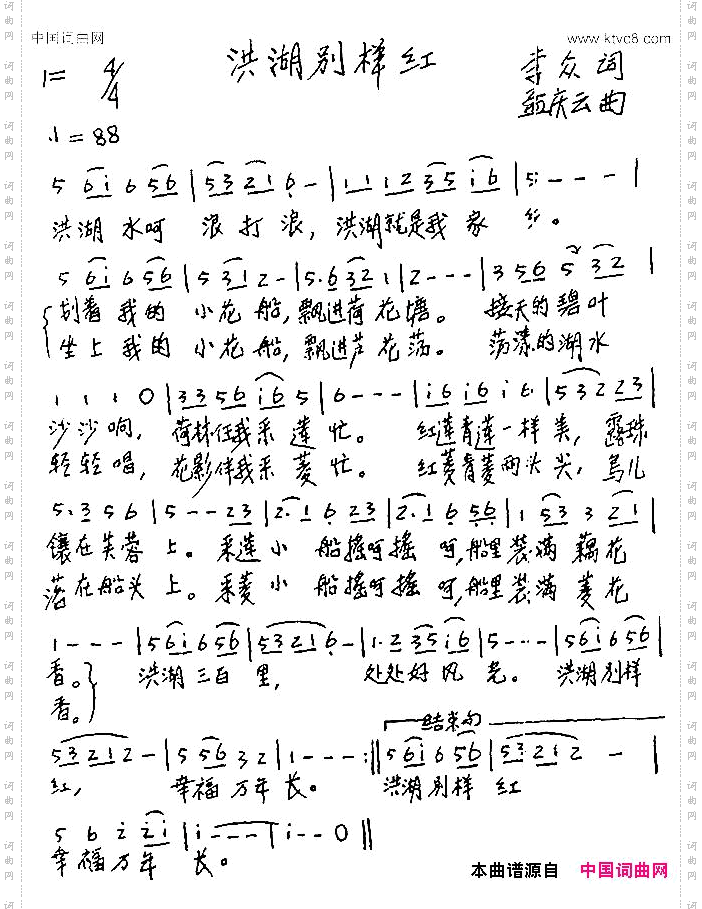 中国词曲网 www.ktvc8.com
洪湖别样红
1= 4/4
李众词
庆云曲
♩=88
5 6i 6 56 | 53 21 6 - | 1 1 1 2 35 i6 | 5 - - - |
洪湖 水呵 浪打浪，洪湖就是我家乡。
5 6i 6 56 | 5 31 2 - | 5. 6 32 1 | 2 - - - | 3 56 5 32 |
划着我的小花船，飘进荷花塘。 接天的碧叶
坐上我的小花船，飘进芦花荡。 荡漾的湖水
1 1 1 0 | 33 56 i6 5 | 6 - - - | i6 i6 i 6. | 5322 23 |
沙沙响，荷林任我采莲忙。 红莲青莲一样美，露珠
轻轻唱，花影伴我采菱忙。 红菱青菱两头尖，鸟儿
5. 3 5 6 | 5 - - 23 | 2. 1 6 23 | 2. 1 6 56 | 1 53 3 21 |
镶在芙蓉上。采莲小船摇呵摇呵，船里装满藕花
落在船头上。采菱小船摇呵摇呵，船里装满菱花
1 - - - | 56i 6 56 | 5321 6 - | 1. 2 35 i6 | 5 - - - | 56i 6 56 |
香。 洪湖三百里， 处处好风光。 洪湖别样
香。
结束句
53 21 2 - | 5 56 3 2 | 1 - - - :|| 56i 6 56 | 53 21 2 - |
红， 幸福万年长。 洪湖别样红
5 6 2 2i | i - - - | i - - 0 ||
幸福万年长。
本曲谱源自 中国词曲网